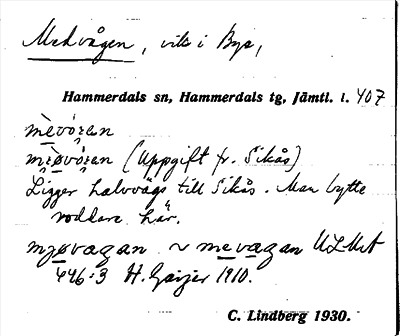 Medvågen, vik i Byn,
Hammerdals sn, Hammerdals tg, Jämtl. l. 407
mèvö̀ŗɛn
(Uppgift fr. Sikås)
Ligger halvvägs till Sikås. Man bytte
roddare här.
mjøvagan ~ mevagan ULMA
446:3 H. Geijer 1910.
C. Lindberg 1930.